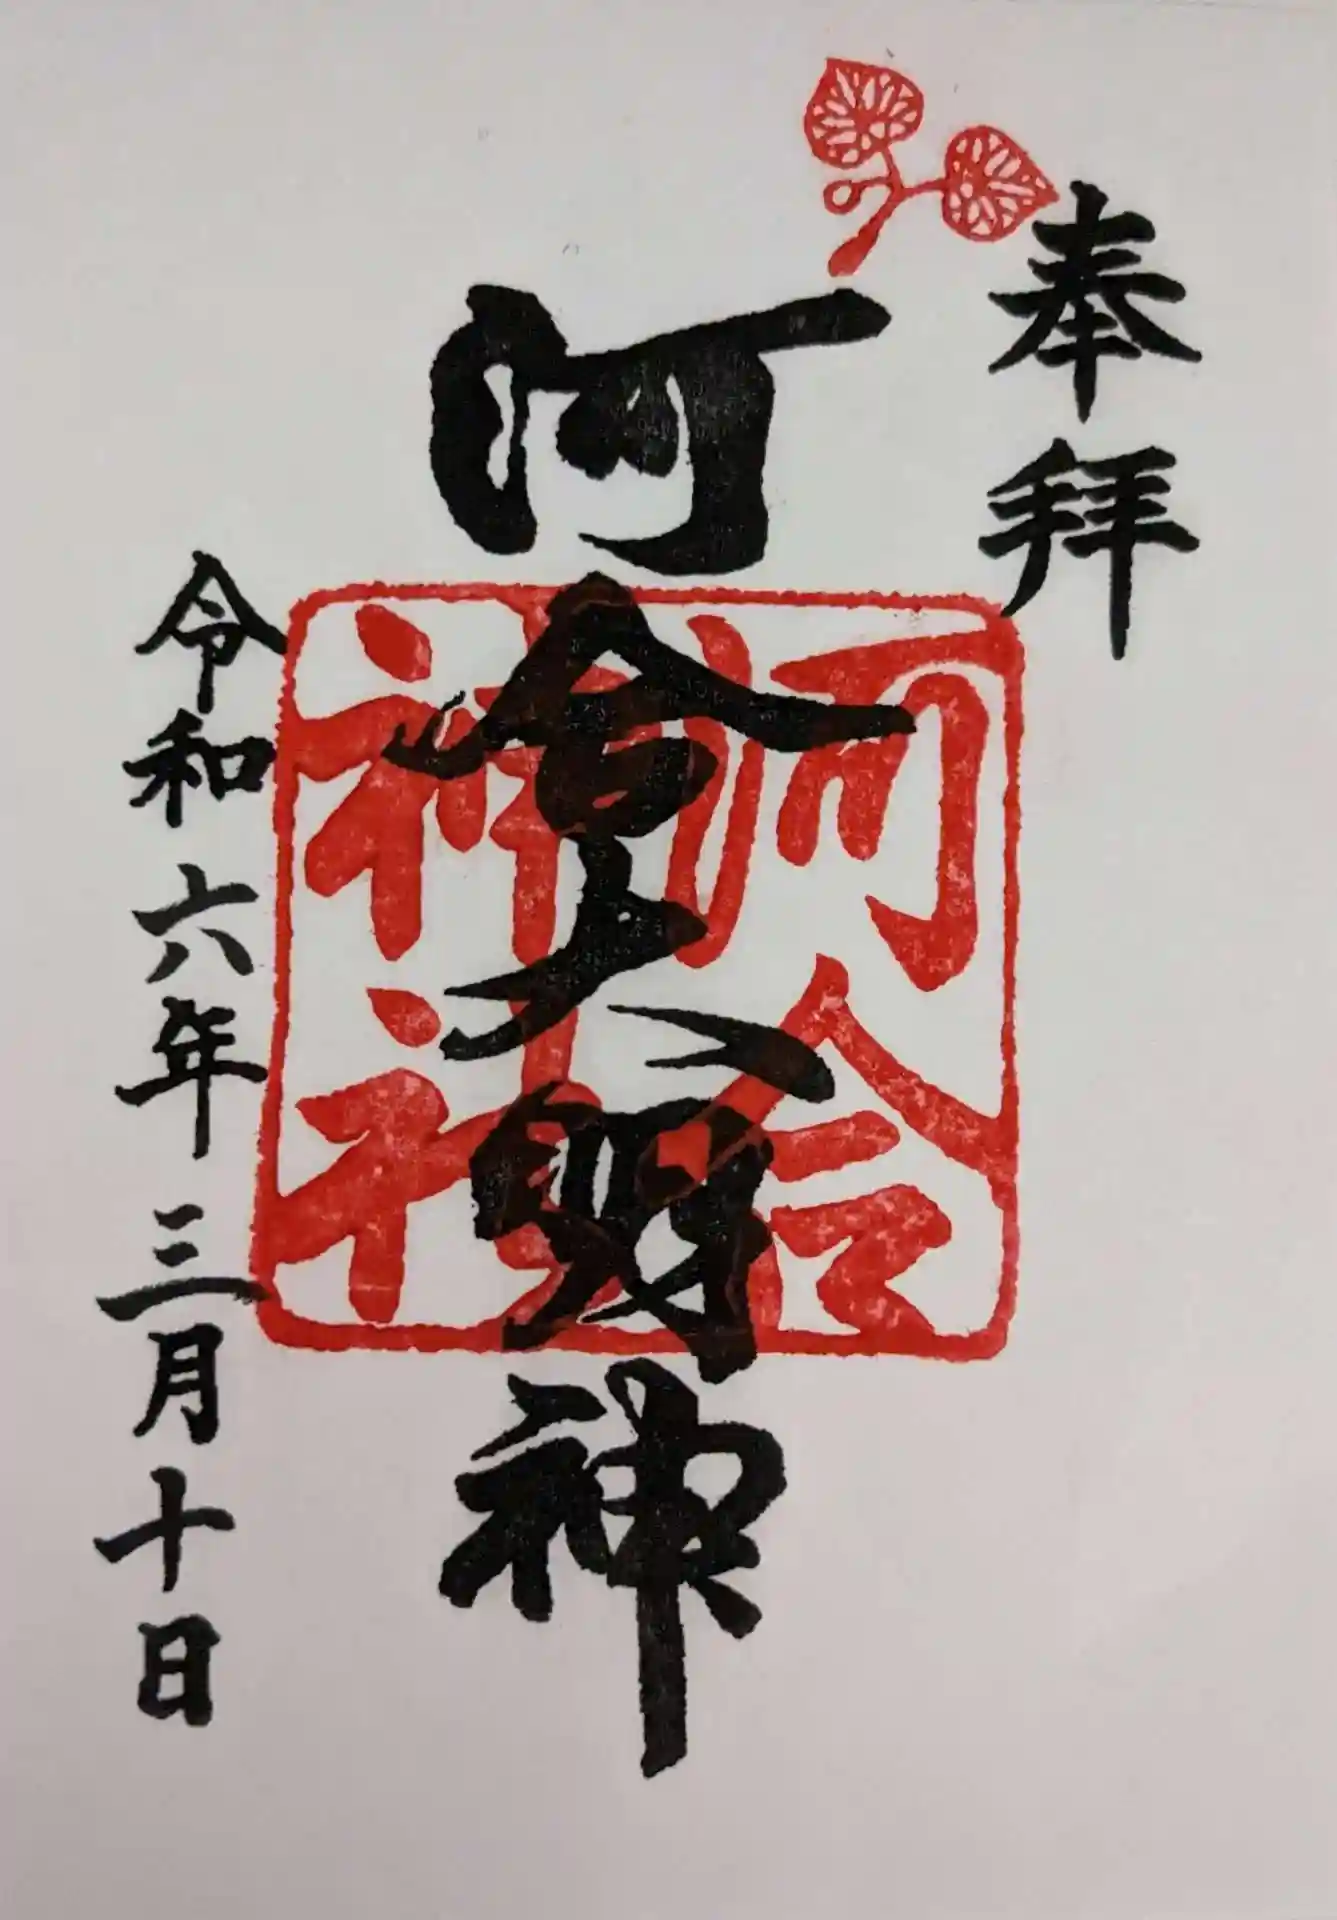 奉拝
河合大明神
河合
神社
令和六年三月十日